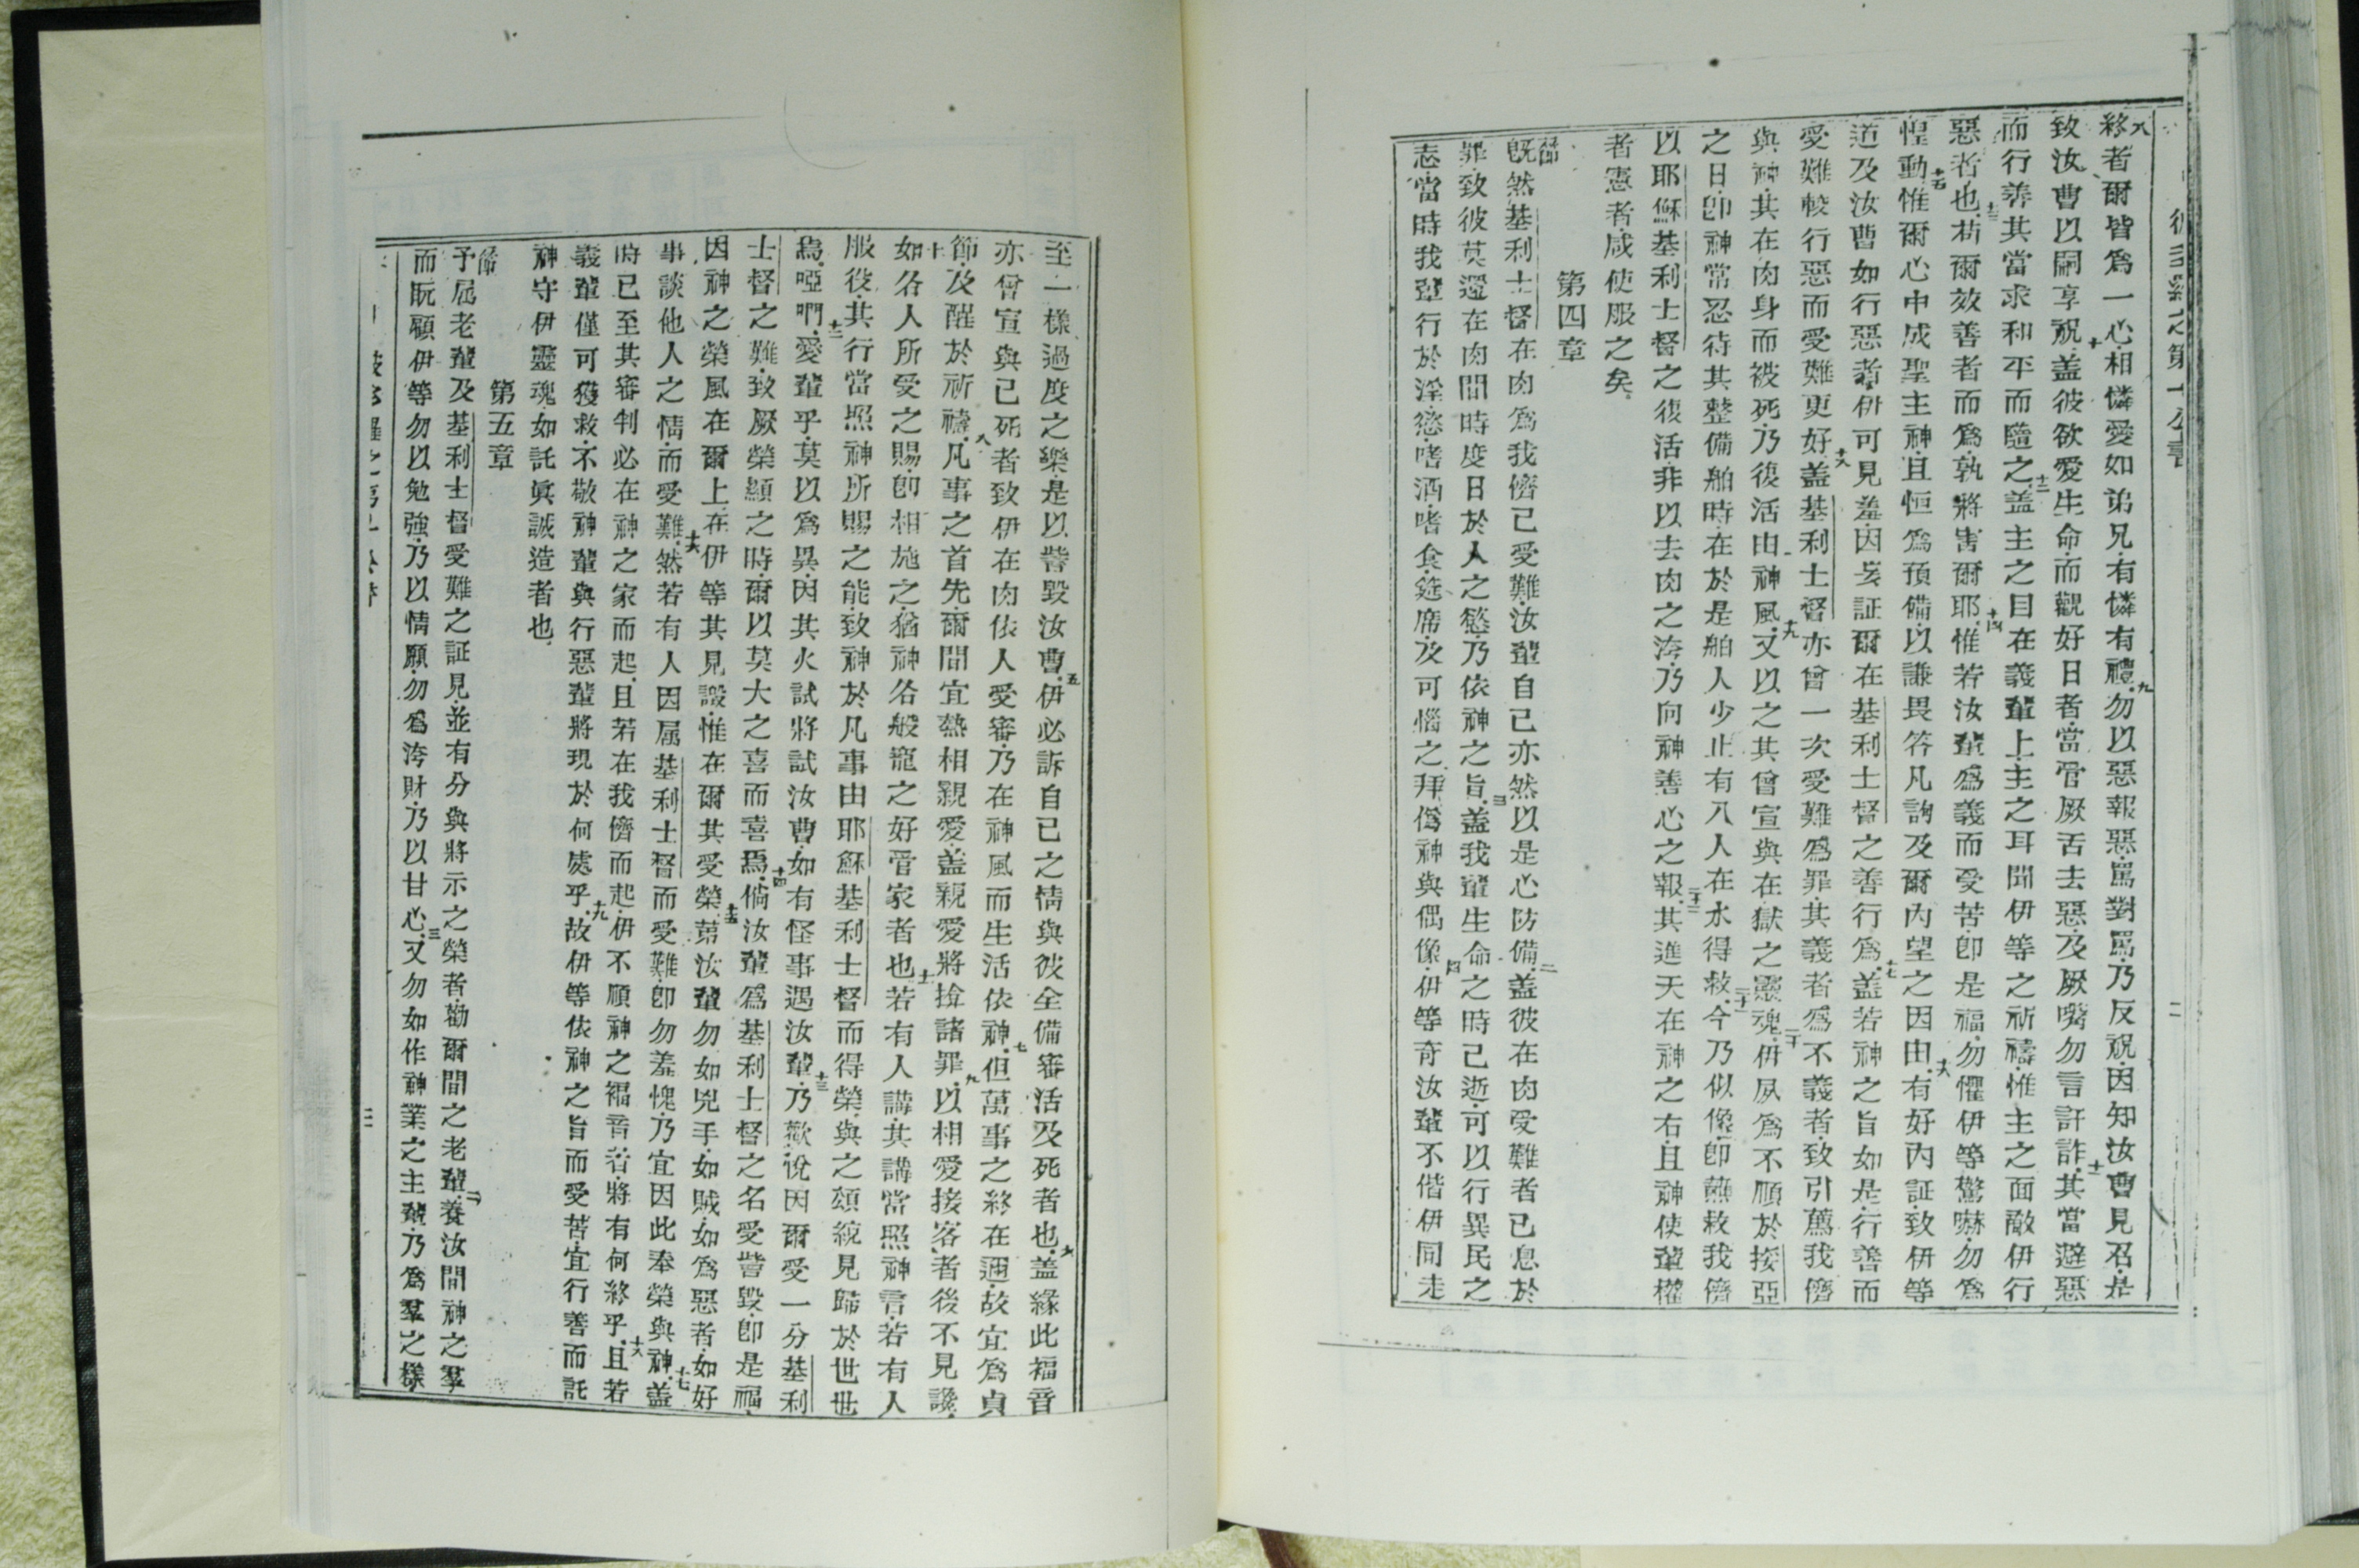 彼多羅之第一公書
二
八終者爾皆爲一心相憐愛如弟兄有憐有禮九勿以惡報惡罵對罵乃反祝因知汝曹見召是
致汝曹以嗣享祝十盖彼欲愛生命而觀好日者當管厥舌去惡及厥嘴勿言訐詐十一其當避惡
而行善其當求和平而隨之十二盖主之目在義輩上主之耳聞伊等之祈禱惟主之面敵伊行
惡者也十三若爾效善者而爲孰將害爾耶十四惟若汝輩爲義而受苦卽是福勿懼伊等驚嚇勿爲
惶動十五惟爾心中成聖主神且恒爲預備以謙畏答凡詢及爾內望之因由十六有好內証致伊等
道及汝曹如行惡者伊可見羞因妄証爾在基利士督之善行爲十七盖若神之旨如是行善而
愛難較行惡而受難更好十八盖基利士督亦曾一次受難爲罪其義者爲不義者致引薦我儕
與神其在肉身而被死乃復活由神風十九又以之其曾宣與在獄之靈魂二十伊夙爲不順於挼亞
之日卽神常忍待其整備船時在於是船人少止有八人在水得救二十一今乃似像卽蘸救我儕
以耶穌基利士督之復活非以去肉之洿乃向神善心之報二十二其進天在神之右且神使輩權
者憲者咸使服之矣
第四章
節既然基利士督在肉爲我儕已受難汝輩自己亦然以是心防備二盖彼在肉受難者已息於
罪致彼莫還在肉間時度日於人之慾乃依神之旨三盖我輩生命之時已逝可以行異民之
志當時我輩行於淫慾嗜酒嗜食筵席及可惱之拜僞神與偶像四伊等奇汝輩不偕伊同走
至一樣過度之樂是以訾毀汝曹五伊必訴自己之情與彼全備審活及死者也六盖緣此福音
亦曾宣與已死者致伊在肉依人受審乃在神風而生活依神七但萬事之終在邇故宜爲貞
節及醒於祈禱八凡事之首先爾間宜熱相親愛盖親愛將揜諸罪九以相愛接客者後不見譏
十如各人所受之賜卽相施之猶神各般寵之好管家者也十一若有人講其講當照神言若有人
服役其行當照神所賜之能致神於凡事由耶穌基利士督而得榮與之頌綂見歸於世世
焉啞㖿十二愛輩乎莫以爲異因其火試將試汝曹如有怪事遇汝輩十三乃歡說因爾受一分基利
士督之難致厥榮顯之時爾以莫大之喜而喜焉十四倘汝輩爲基利士督之名受訾毀卽是福
因神之榮風在爾上在伊等其見譭惟在爾其受榮十五第汝輩勿如兇手如賊如爲惡者如好
事談他人之情而受難十六然若有人因屬基利士督而受難卽勿羞愧乃宜因此奉榮與神十七盖
時已至其審判必在神之家而起且若在我儕而起伊不順神之福音者將有何終乎十八且若
義輩僅可獲救不敬神輩與行惡輩將現於何處乎十九故伊等依神之旨而受苦宜行善而託
神守伊靈魂如託眞誠造者也
第五章
節予屬老輩及基利士督受難之証見並有分與將示之榮者勸爾間之老輩二養汝間神之羣
而阮顧伊等勿以勉強乃以情願勿爲洿財乃以甘心三又勿如作神業之主輩乃爲羣之樣
之第一公書
三